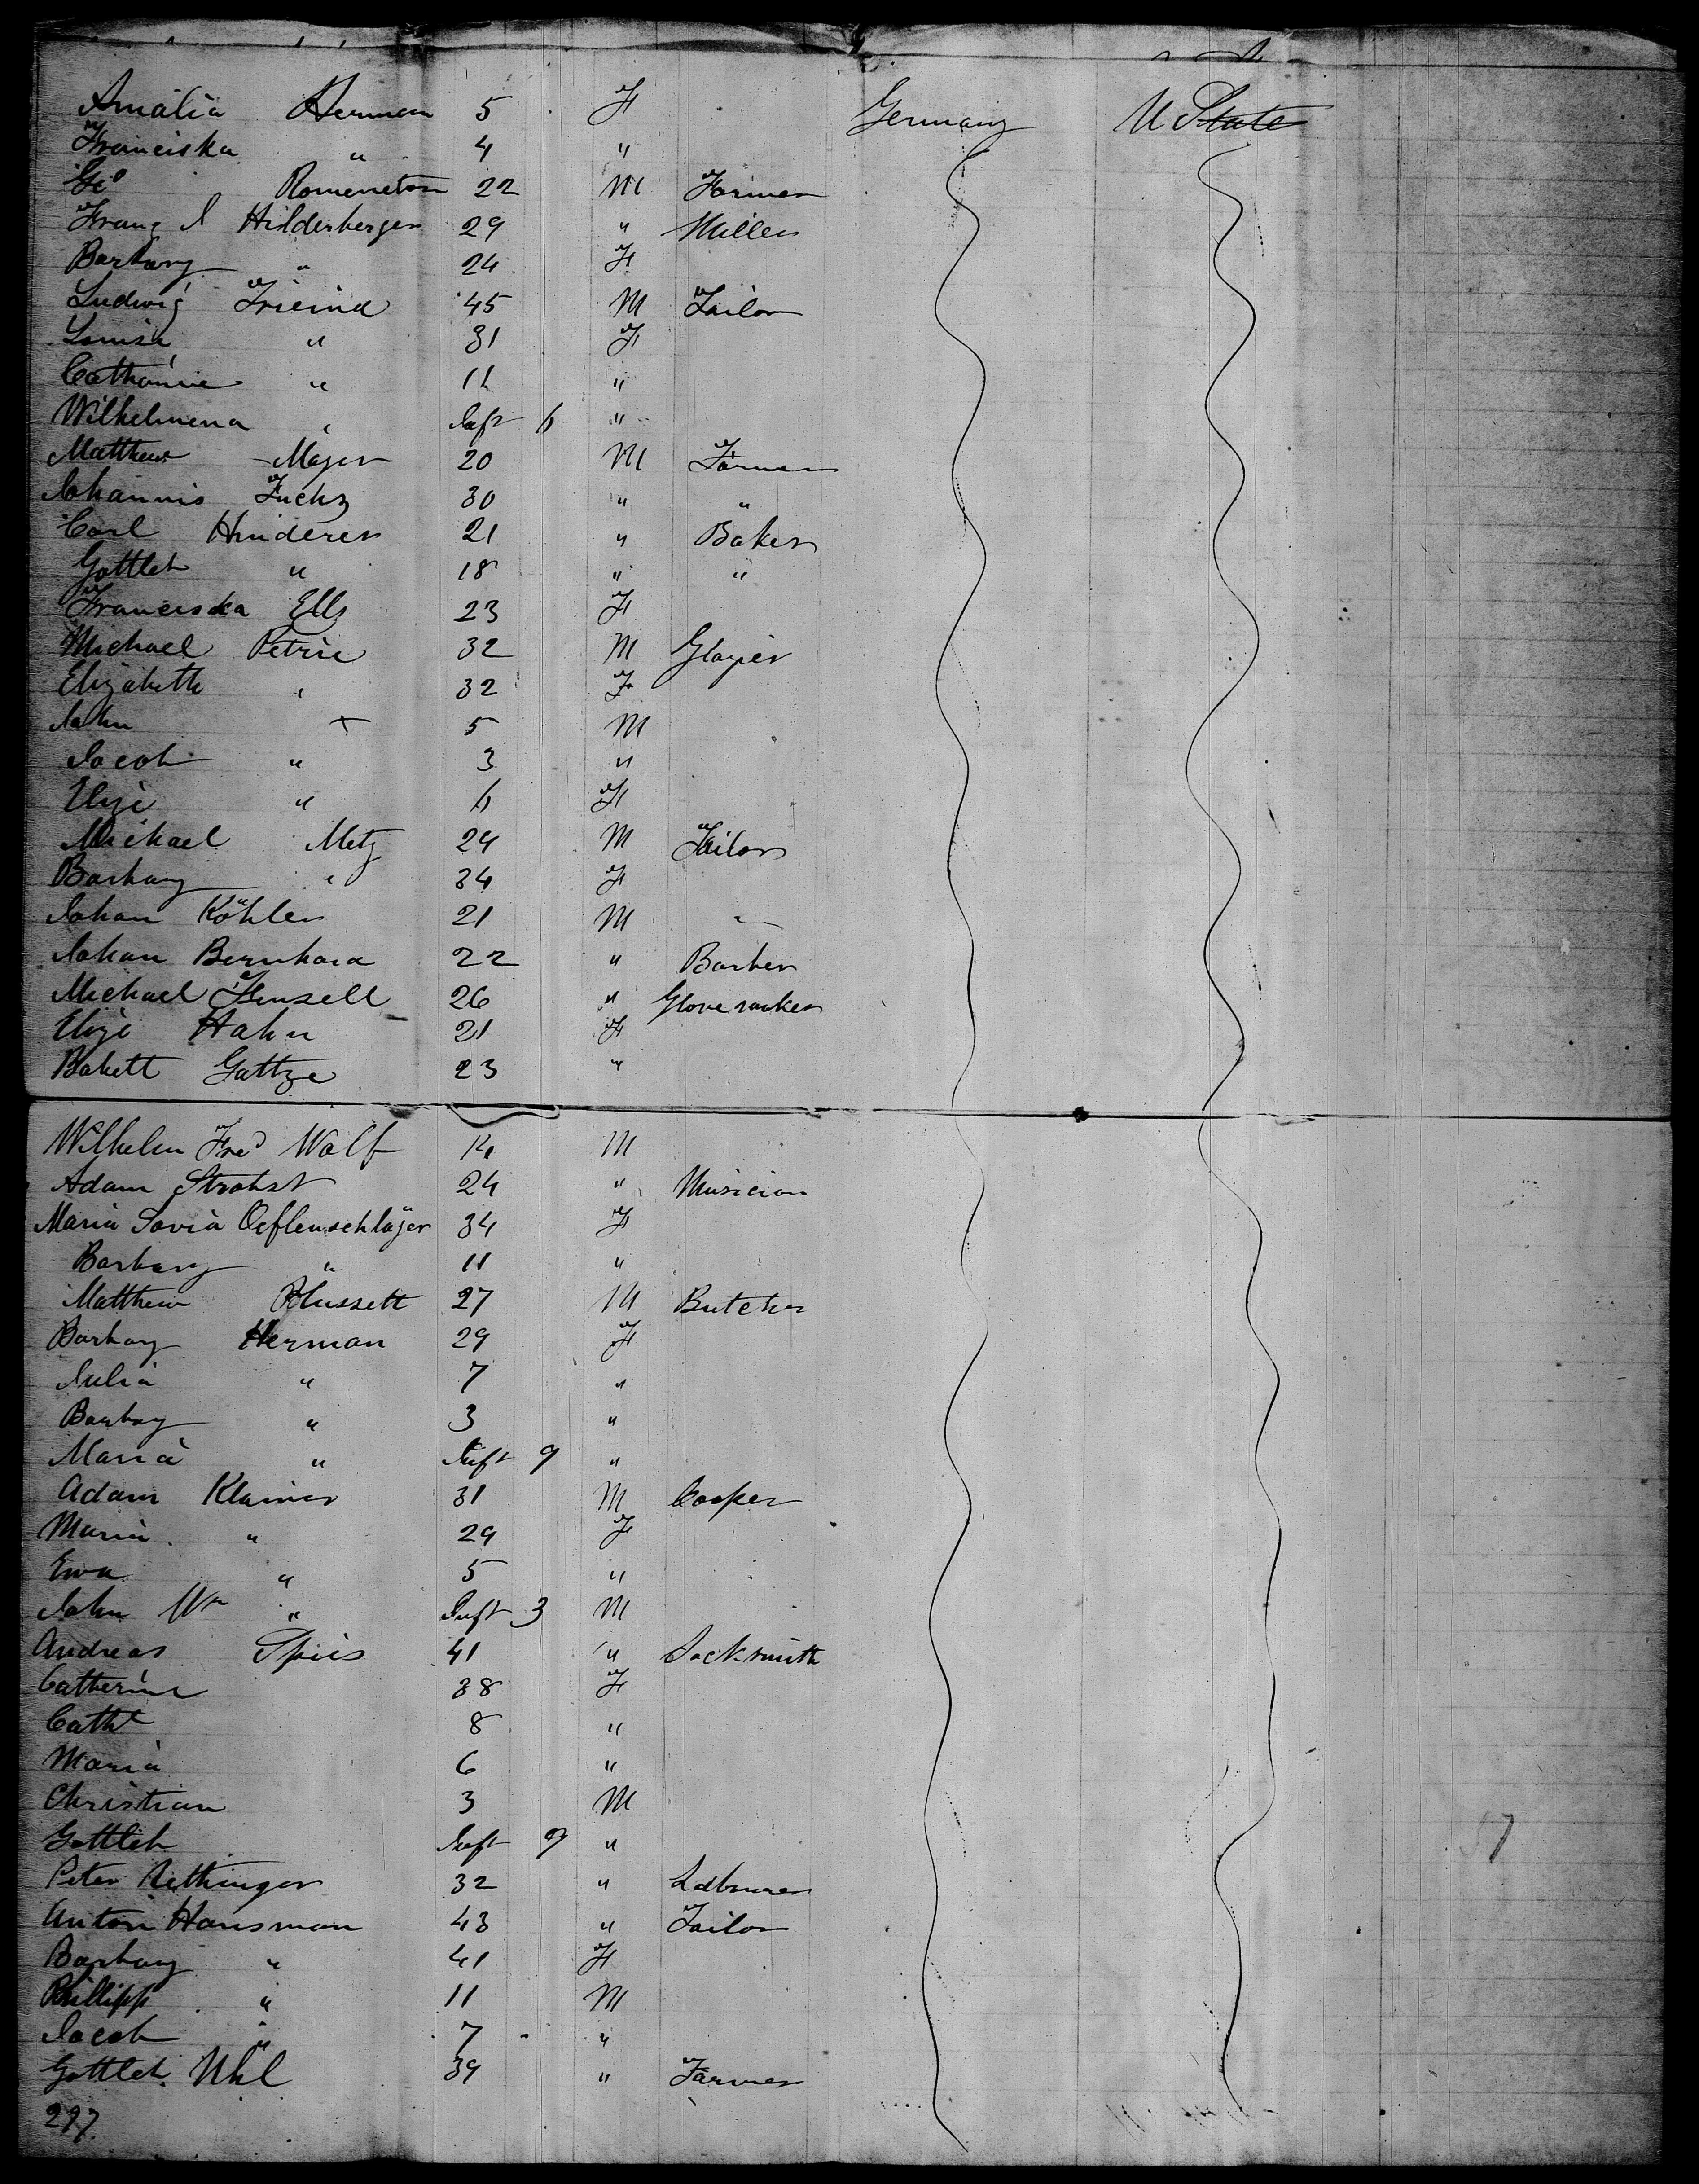 Amalia Herman 5 F Germany U State
Franciska " 4 "
Geo Romeneton 22 M Farmer
Franz J Hilderberger 29 " Miller
Barbary " 24 F
Ludwig Frieind 45 M Tailor
Louisa " 31 F
Catharine " 11 "
Wilhelmena " Inft 6 "
Matthew Mager 20 M Farmer
Johannis Fuchs 30 " "
Carl Hinderer 21 " Baker
Gottleb " 18 " "
Franciska Ells 23 F
Michael Petrie 32 M Glazier
Elizabeth " 32 F
John " 5 M
Jacob " 3 "
Elize " 6 F
Michael Metz 24 M Tailor
Barbary " 34 F
Johan Köhler 21 M "
Johan Bernhard 22 " Barber
Michael Hensell 26 " Glove maker
Elize Hahn 21 F
Babett Gattze 23 "
Wilhelm Fred Wolf 14 M
Adam Strobst 24 " Musician
Maria Sovia Oeflenschläger 34 F
Barbary " 11 "
Matthew 27 M Butcher
Barbary Herman 29 F
Julia " 7 "
Barbay " 3 "
Maria " Inft 9 "
Adam Klamer 31 M Cooper
Maria " 29 F
Eva " 5 "
John Wm " Inft 3 M
Andreas Spies 41 " Locksmith
Catherine 38 F
Catht 8 "
Maria 6 "
Christian 3 M
Gottleb Inft 9 "
Peter Rettinger 32 " Labourer
Anton Hansman 43 " Tailor
Barbary " 41 F
Phillipp " 11 M
Jacob " 7 "
Gottleb Uhl 39 " Farmer
297
57